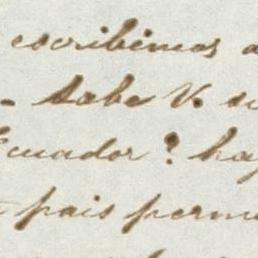 escribimos a
- sabe V. su
Ecuador? hay
pais perm